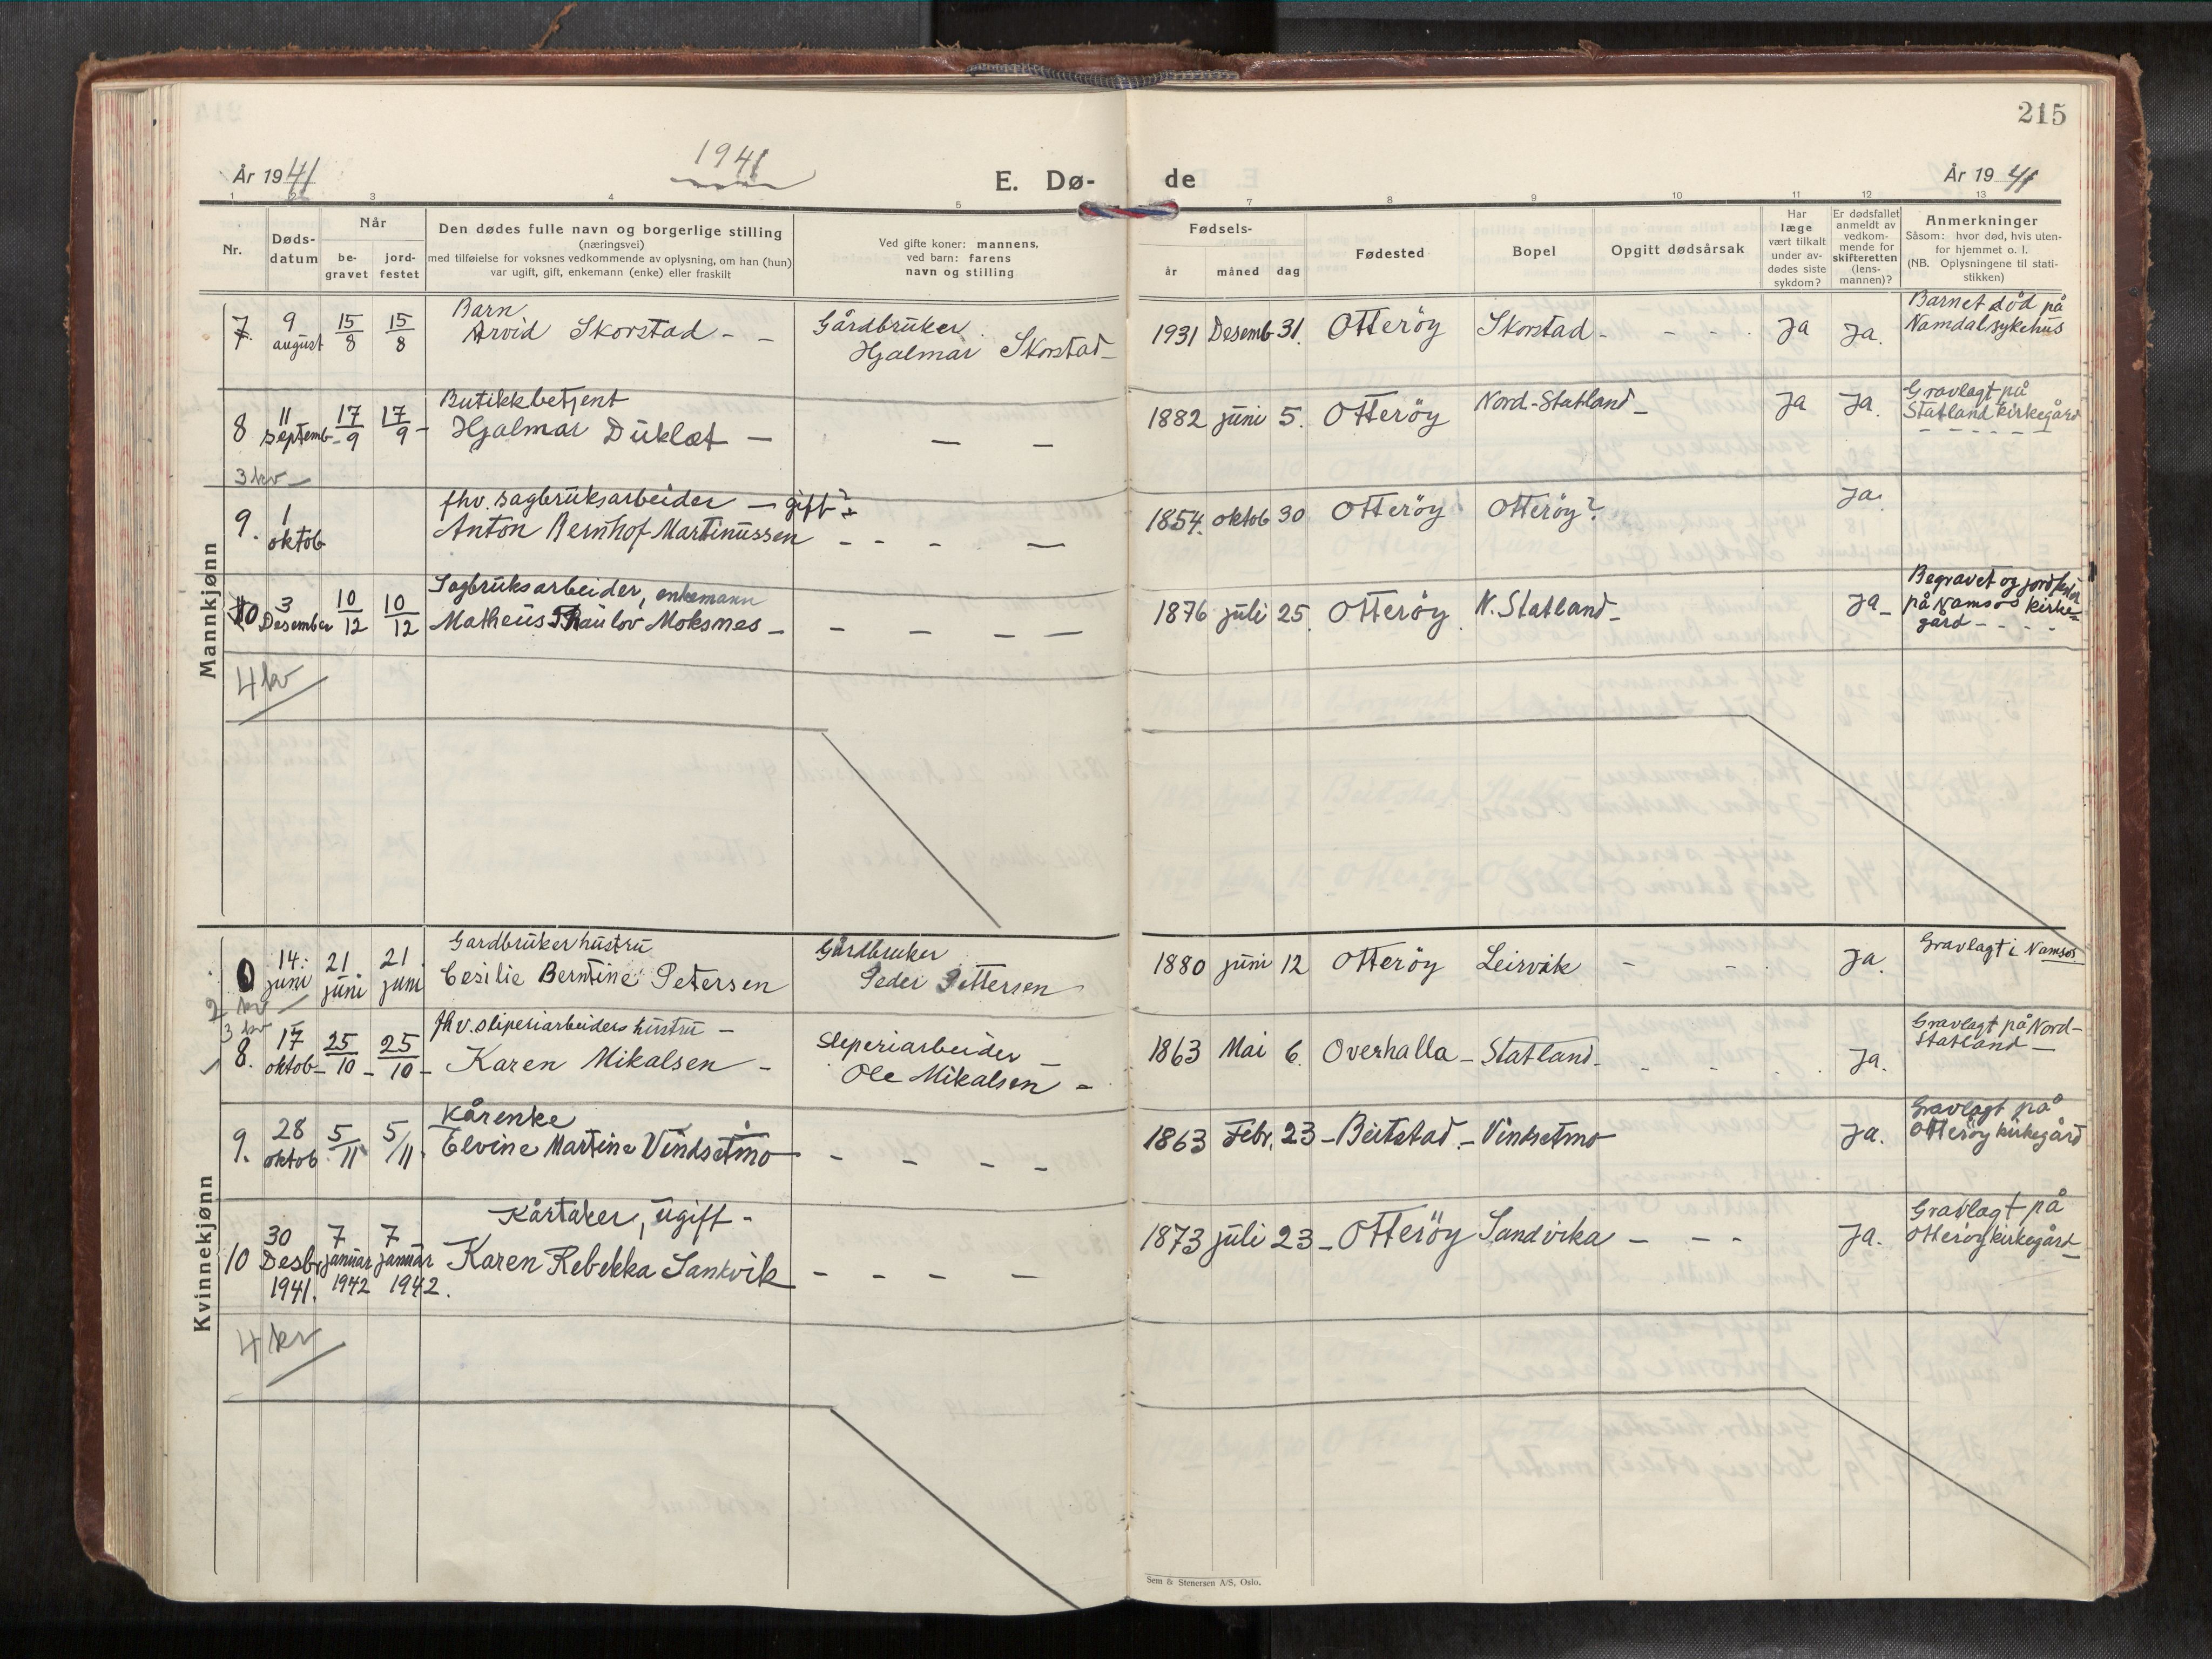 215
År 1941
1941
E. Dø-
de
År 19 41
1 2 3 4 5 7 8 9 10 11 12 13
Nr.
Døds-
datum
Når
be-
gravet
jord-
festet
Den dødes fulle navn og borgerlige stilling
(næringsvei)
med tilføielse for voksnes vedkommende av oplysning, om han (hun)
var ugift, gift, enkemann (enke) eller fraskilt
Ved gifte koner: mannens,
ved barn: farens
navn og stilling
Fødsels-
år måned dag
Fødested
Bopel
Opgitt dødsårsak
Har
læge
vært tilkalt
under av-
dødes siste
sykdom?
Er dødsfallet
anmeldt av
vedkom-
mende for
skifteretten
(lens-
mannen)?
Anmerkninger
Såsom: hvor død, hvis uten-
for hjemmet o. l.
(NB. Oplysningene til stati-
stikken)
Mannkjønn
7. 9 august 15/8 15/8 Barn
Arvid Skorstad - -
Gårdbruker
Hjalmar Skorstad -
1931 Desemb 31. Otterøy Skorstad - - - - Ja Ja.
Barnet död på
Namdal sykehus
8 11 septemb- 17/9 17/9 - Butikkbetjent
Hjalmar Duklæt - - -
1882 juni 5. Otterøy Nord-Statland - Ja Ja.
Gravlagt på
Statland kirkegård
3 kv
9. 1 oktob fhv. sagbruksarbeider — gift?
Anton Bernhof Martinussen - - - -
1854. oktob 30 Otterøy Otterøy? Ja.
10 3 Desember 10/12 10/12 Sagbruksarbeider, enkemann
Matheus Thaulov Moksnes - - - - -
1876 juli 25. Otterøy N. Statland - Ja -
Begravet og jordfestet
på Namsos kirke-
gård - - - -
4 kv
Kvinnekjønn
14. juni 21 juni 21 juni Gardbrukerhustru
Cesilie Berntine Petersen
Gårdbruker
Peder Pettersen
1880 juni 12 Otterøy Leirvik - - Ja.
Gravlagt i Namsos
2 kv
3 kv
8. 17 oktob- 25/10 - 25/10 - fhv. sliperiarbeiders hustru -
Karen Mikalsen -
Sleperiarbeider -
Ole Mikalsen -
1863 Mai 6. Overhalla - Statland - - - - - Ja.
Gravlagt på Nord-
Statland -
9. 28 oktob 5/11 5/11. Kårenke
Elvine Martine Vindsetmo - - - - -
1863 Febr. 23 - Beitstad - Vindsetmo Ja.
Gravlagt på
Otterøy kirkegård
10 30 Desbr 1941. 7 januar 1942 7 januar 1942. Kårtaker, ugift -
Karen Rebekka Sandvik - - - -
1873 juli 23 - Otterøy Sandvika - - - Ja.
Gravlagt på
Otterøy kirkegård
4 kv
Sem & Stenersen A/S, Oslo.